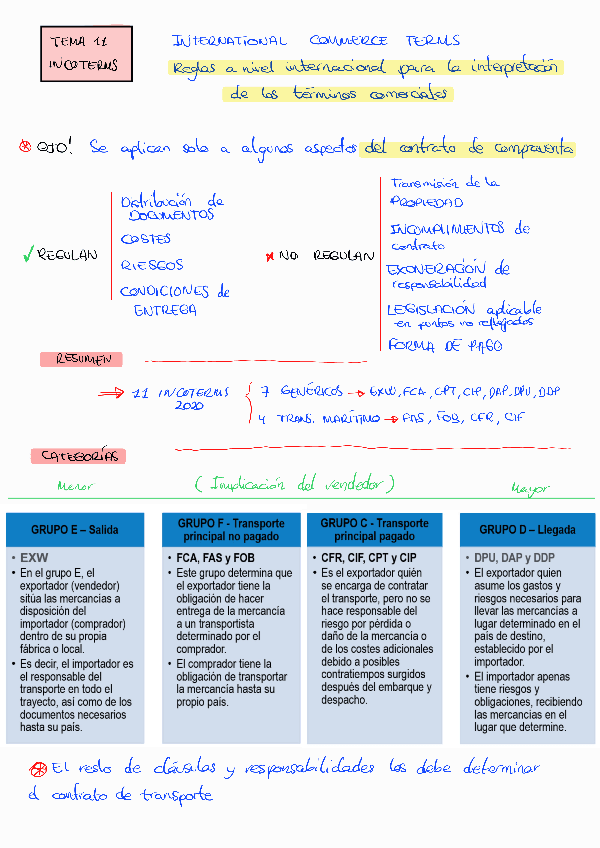 TEMA 11
INCOTERMS
INTERNATIONAL COMMERCE TERMS
Reglas a nivel internacional para la interpretación
de los términos comerciales
OJO! Se aplican solo a algunos aspectos del contrato de compraventa
REGULAN
Distribución de
DOCUMENTOS
COSTES
RIESGOS
CONDICIONES de
ENTREGA
NO REGULAN
Transmisión de la
PROPIEDAD
INCUMPLIMIENTOS de
contrato
EXONERACIÓN de
responsabilidad
LEGISLACIÓN aplicable
en puntos no reflejados
FORMA DE PAGO
RESUMEN
11 INCOTERMS
2020
7 GENÉRICOS → EXW, FCA, CPT, CIP, DAP, DPU, DDP
4 TRANS. MARÍTIMO → FAS, FOB, CFR, CIF
CATEGORÍAS
Menor (Implicación del vendedor) Mayor
GRUPO E – Salida
• EXW
• En el grupo E, el
exportador (vendedor)
sitúa las mercancías a
disposición del
importador (comprador)
dentro de su propia
fábrica o local.
• Es decir, el importador es
el responsable del
transporte en todo el
trayecto, así como de los
documentos necesarios
hasta su país.
GRUPO F - Transporte
principal no pagado
• FCA, FAS y FOB
• Este grupo determina que
el exportador tiene la
obligación de hacer
entrega de la mercancía
a un transportista
determinado por el
comprador.
• El comprador tiene la
obligación de transportar
la mercancía hasta su
propio país.
GRUPO C - Transporte
principal pagado
• CFR, CIF, CPT y CIP
• Es el exportador quién
se encarga de contratar
el transporte, pero no se
hace responsable del
riesgo por pérdida o
daño de la mercancía o
de los costes adicionales
debido a posibles
contratiempos surgidos
después del embarque y
despacho.
GRUPO D – Llegada
• DPU, DAP y DDP
• El exportador quien
asume los gastos y
riesgos necesarios para
llevar las mercancías a
lugar determinado en el
país de destino,
establecido por el
importador.
• El importador apenas
tiene riesgos y
obligaciones, recibiendo
las mercancías en el
lugar que determine.
El resto de cláusulas y responsabilidades las debe determinar
el contrato de transporte